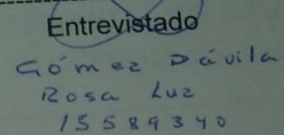 Entrevistado
Gómez Dávila
Rosa Luz
15589340